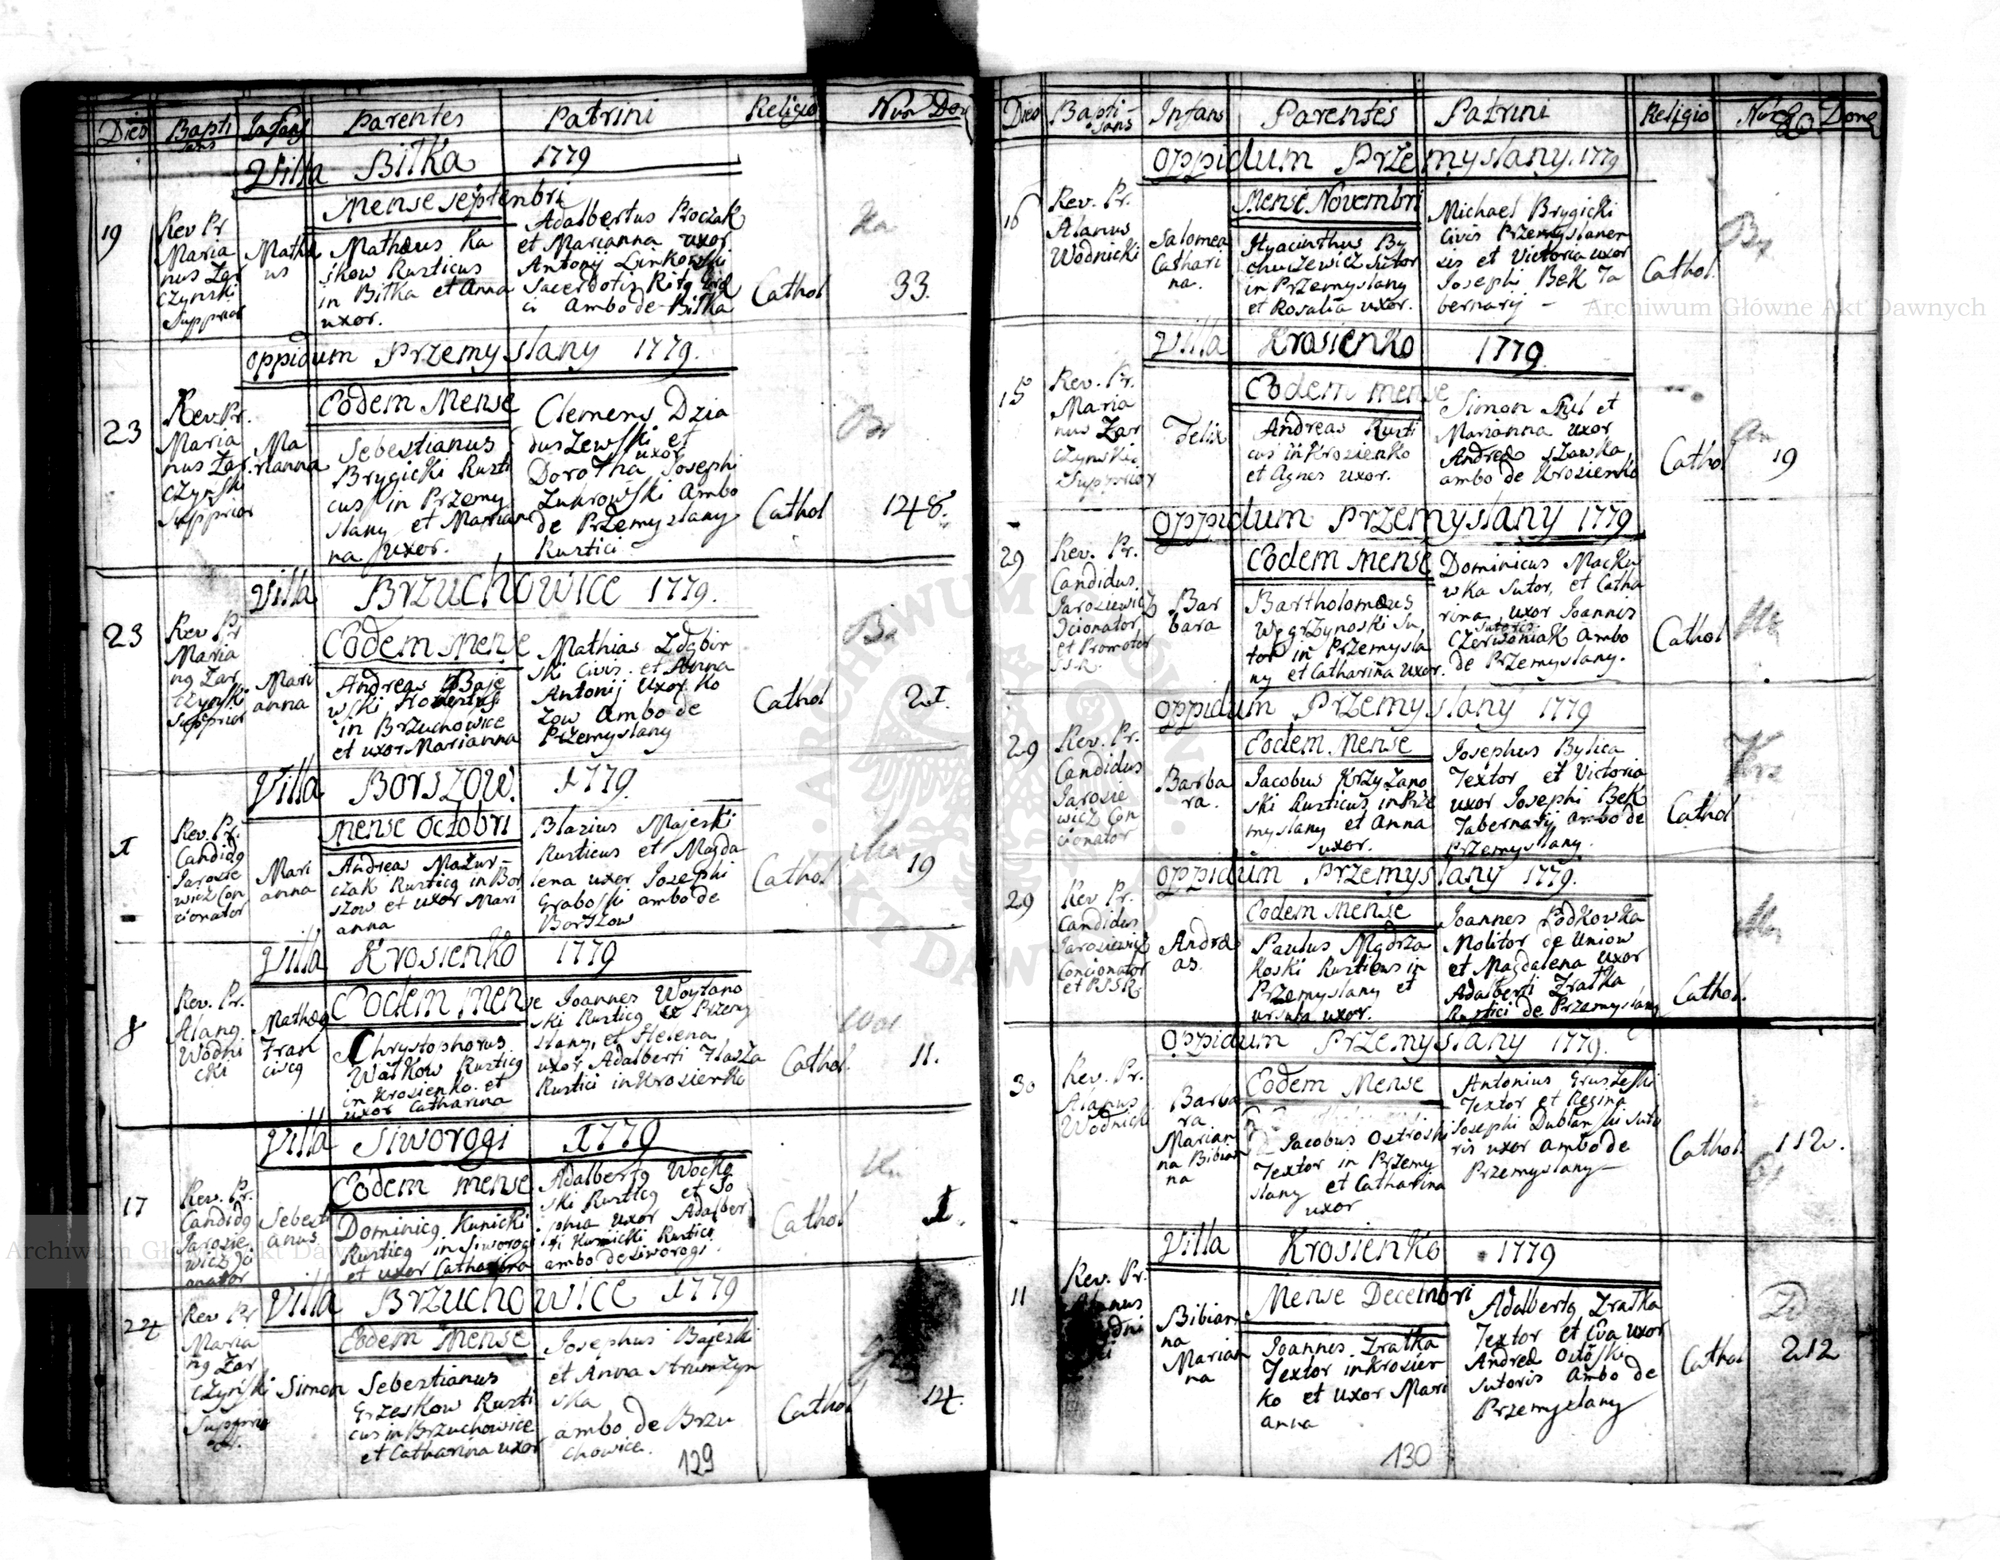 Dies Bapti
sans Infans Parentes Patrini Religio Nur Dom
Villa Bitka 1779
Mense Septenbri
19
Rev Pr
Maria
nus Zar
czynski
Supprior
Mathæ
us
Mathæus Ka
skow Rusticus
in Bitka et Anna
uxor.
Adalbertus Proczak
et Marianna uxor.
Antonij Lunkowski
Sacerdotis
ci Ambo de Bitka
Cathol
Ka
33.
Oppidum Przemyslany 1779.
Eodem Mense
23
Rev Pr.
Maria
nus Zar
czyński
Supprior
Ma
rianna
Sebestianus
Brygicki Rusti
cus in Przemy
slany et Marian
na uxor.
Clemens Dzia
duszewski et
uxor
Dorotha Josephi
Zukrowski Ambo
de Przemyslany
Rustici
Cathol
Br
1248.
Villa Brzuchowice 1779.
Eodem Mense
23
Rev Pr
Maria
ng Zar
czyński
Supprior
Mari
anna
Andreas Baje
wski
in Brzuchowice
et uxor Marianna
Mathias Zdobin
ski Civis et Anna
Antonij uxor Ko
zow Ambo de
Przemyslany
Cathol
Ba
21.
Villa Borszow. 1779.
Mense Octobri
1
Rev. Pr.
Candidg
Jarosie
wicz Con
cionator
Mari
anna
Andreas Mazur-
czak Rusticg in Bor
szow et uxor Mari
anna
Blasius Majeski
Rusticus et Magda
lena uxor Josephi
Graboski ambo de
Borszow
Cathol
Ma
19
Villa Krosienko 1779
Eodem Mense
8
Rev. Pr.
Alang
Wodni
cki
Mathæg
Fran
ciscg
Chrystophorus
Watkow Rusticg
in Krosienko et
uxor Catharina
Joannes Woytano
ski Rusticg Przemy
slany, et Helena
uxor Adalberti Flasza
Rustici in Krosienko
Cathol.
Wat
11.
Villa Siworogi 1779
Eodem Mense
17
Rev. Pr.
Candidg
Jarosie
wicz
onator
Sebesti
anus
Dominicg Kunicki
Rusticg in Siworogi
et uxor Catharina
Adalbertg Wocho
ski Rusticg et So
phia uxor Adalber
ti Kunicki Rustici
ambo de Siworogi.
Cathol
Ku
1.
Villa Brzuchowice 1779
Eodem Mense
22
Rev Pr
Maria
ng Zar
czyński
Supprior
Simon
Sebestianus
Grzeskow Rusti
cus in Brzuchowice
et Catharina uxor
Josephus Bajeski
et Anna Strumzyn
ska
ambo de Brzu
chowice.
Cathol
14.
129
Dies Bapti-
sans Infans Parentes Patrini Religio Nur Domg
Oppidum Przemyslany. 1779
Mense Novembri
16
Rev. Pr.
Alanus
Wodnicki
Salomea
Cathari
na.
Hyacinthus By
chucewicz Sutor
in Przemyslany
et Rosalia uxor.
Michael Brygicki
Civis Przemyslanen
sis et Victoria uxor
Josephi Bek Ta
bernarij -
Cathol.
By
Villa Krosienko 1779
Eodem mense
15
Rev. Pr.
Maria
nus Zar
czynski
Supprior
Felix
Andreas Rusti
cus in Krosienko
et Agnes uxor.
Simon Ful et
Marianna uxor
Andreæ Szawka
ambo de Krosienko
Cathol
An
19
Oppidum Przemyslany 1779
Eodem Mense
29
Rev. Pr.
Candidus
Jarosiewicz
Ocionator
et Promotor
S.S.R.
Bar
bara
Bartholomæus
Węgrzynoski Su
tor in Przemysla
ny et Catharina uxor.
Dominicus Macku
wka Sutor, et Catha
rina uxor Joannis
Sutoris
Czerwoniak Ambo
de Przemyslany.
Cathol
We
Oppidum Przemyslany 1779
Eodem Mense
29
Rev. Pr.
Candidus
Jarosie
wicz Con
cionator
Barba
ra.
Jacobus Krzyzano
ski Rusticus in Prze
myslany et Anna
uxor.
Josephus Bylica
Textor et Victoria
uxor Josephi Bek
Tabernarij ambo de
Przemyslany.
Cathol
Krz
Oppidum Przemyslany 1779.
Eodem Mense
29
Rev Pr.
Candidus
Jarosiewicz
Concionator
et P.S.S.R.
Andre
as.
Paulus Mądrza
koski Rusticus in
Przemyslany et
Ursula uxor.
Joannes Podkowka
Molitor de Uniow
et Magdalena uxor
Adalberti Zratka
Rustici de Przemyslany
Cathol.
Oppidum Przemyslany 1779.
Eodem Mense
30
Rev. Pr.
Alanus
Wodnicki
Barba
ra.
Marian
na Bibian
na
Jacobus Ostroski
Textor in Przemy
slany et Catharina
uxor
Antonius Gruszeski
Textor et Regina
Josephi Dublanski Suto
ris uxor ambo de
Przemyslany
Cathol.
112.
Os
Villa Krosienko 1779
Mense Decembri
11
Rev. Pr.
Alanus
Wodni
cki
Bibian
na
Marian
na
Joannes Zratka
Textor in Krosien
ko et uxor Mari
anna
Adalbertg Zratka
Textor et Eva uxor
Andreæ Ocioski
Sutoris Ambo de
Przemyslany
Cathol
212
130
Archiwum Główne Akt Dawnych
Archiwum Główne Akt Dawnych
ARCHIWUM GŁÓWNE AKT DAWNYCH